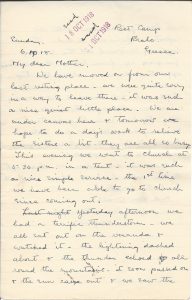 recd 16 OCT 1918
ansd 16 OCT 1918
Rest Camp
Sunday.
6, 10.18
Greece
My dear Mother,
We have moved on from our
last resting place. we were quite sorry
in a way to leave there. it was such
a nice quiet little place. We are
under canvas here & tomorrow we
hope to do a day's work to relieve
the sisters a bit. they are all so busy.
This evening we went to church at
5-30 p.m. in a tent. it was such
a nice simple service - the 1st time
we have been able to go to church
since coming out.
yesterday afternoon we
had a terrific thunderstorm. we
all sat out on the veranda &
watched it - the lightning dashed
about & the thunder echoed
round the mountains. It soon passed on
& the sun came out & we saw the